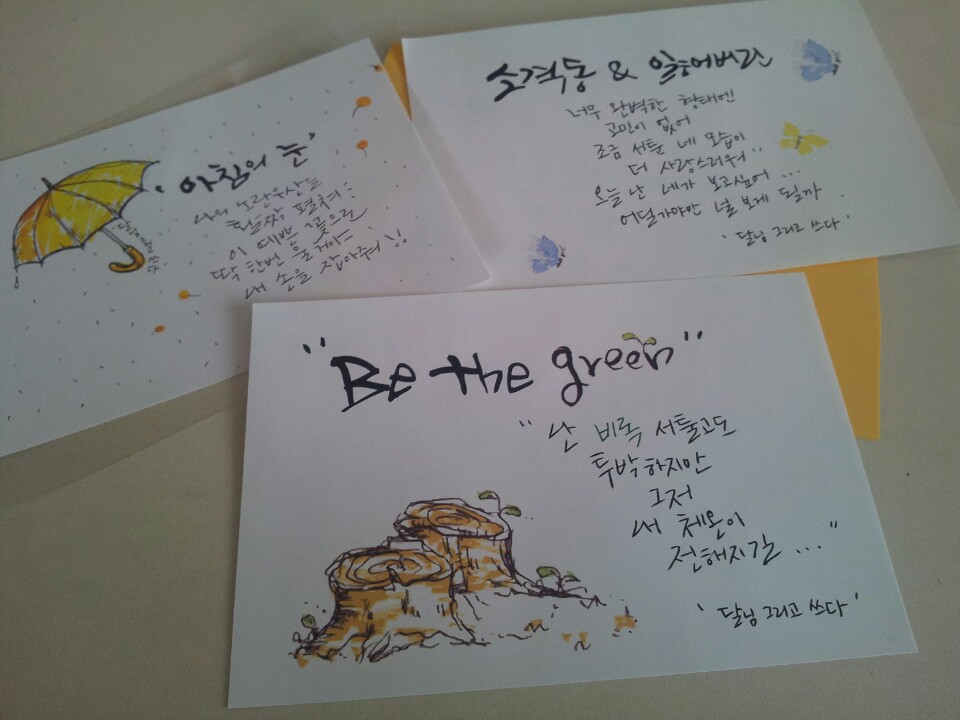 "아침의 눈"
나의 노란우산을
활짝 펼쳐
이 예쁜 꽃으로
딱 한번 물게
내 손을 잡아줘
소격동 & 잃어버린
너무 완벽한 형태엔
고민이 없어
조금 서툰 네 모습이
더 사랑스러워..
오늘 난 네가 보고싶어...
어딜가야만 널 보게 될까
'달님 그리고 쓰다'
"Be the green"
"난 비록 서툴고도
투박하지만
그저
내 체온이
전해지길..."
'달님 그리고 쓰다'